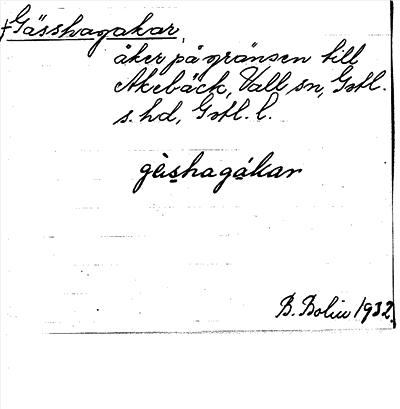 †Gässhagakar,
åker på gränsen till
Akebäck, Vall sn, Gotl.
s. hd, Gotl. l.
gä̀s̱hagákar
B. Bolin 1932.